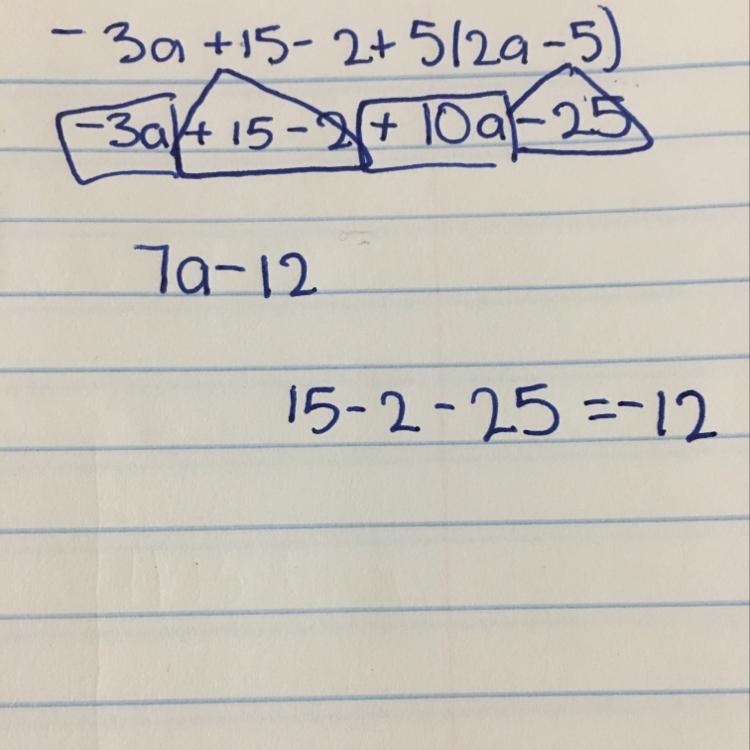 - 3a + 15 - 2 + 5(2a - 5)
-3a + 15 - 2 + 10a - 25
7a - 12
15 - 2 - 25 = -12